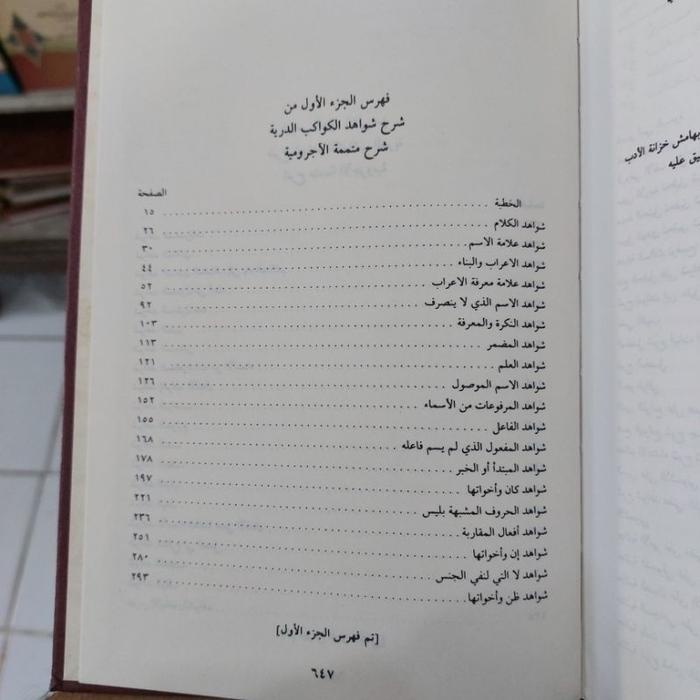 فهرس الجزء الأول من
شرح شواهد الكواكب الدرية
شرح متممة الأجرومية
الصفحة
الخطبة ١٥
شواهد الكلام ٢٦
شواهد علامة الاسم ٣٠
شواهد الاعراب والبناء ٤٤
شواهد علامة معرفة الاعراب ٥٢
شواهد الاسم الذي لا ينصرف ٩٢
شواهد النكرة والمعرفة ١٠٣
شواهد المضمر ١١٣
شواهد العلم ١٢١
شواهد الاسم الموصول ١٢٦
شواهد المرفوعات من الأسماء ١٥٢
شواهد الفاعل ١٥٥
شواهد المفعول الذي لم يسم فاعله ١٦٨
شواهد المبتدأ أو الخبر ١٧٨
شواهد كان وأخواتها ١٩٧
شواهد الحروف المشبهة بليس ٢٢١
شواهد أفعال المقاربة ٢٣٦
شواهد إن وأخواتها ٢٥١
شواهد لا التي لنفي الجنس ٢٨٠
شواهد ظن وأخواتها ٢٩٣
[تم فهرس الجزء الأول]
٦٤٧
بهامش خزانة الأدب
عليه